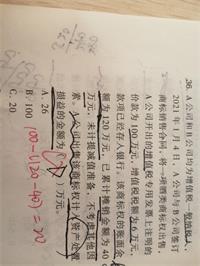 36. A公司和B公司均为增值税一般纳税人，
2021年1月4日，A公司与B公司签订
商标销售合同，将一项酒类商标权出售，
A公司开出的增值税专用发票上注明的
价款为100万元，增值税税额为6万元，
款项已经存入银行。该商标权的账面余
额为120万元，已累计摊销金额为40
万元，未计提减值准备，不考虑其他因
素。A公司出售该商标权计入资产处置
损益的金额为（ ）万元。
A. 26
B. 100
C. 20
100-(120-40)=20